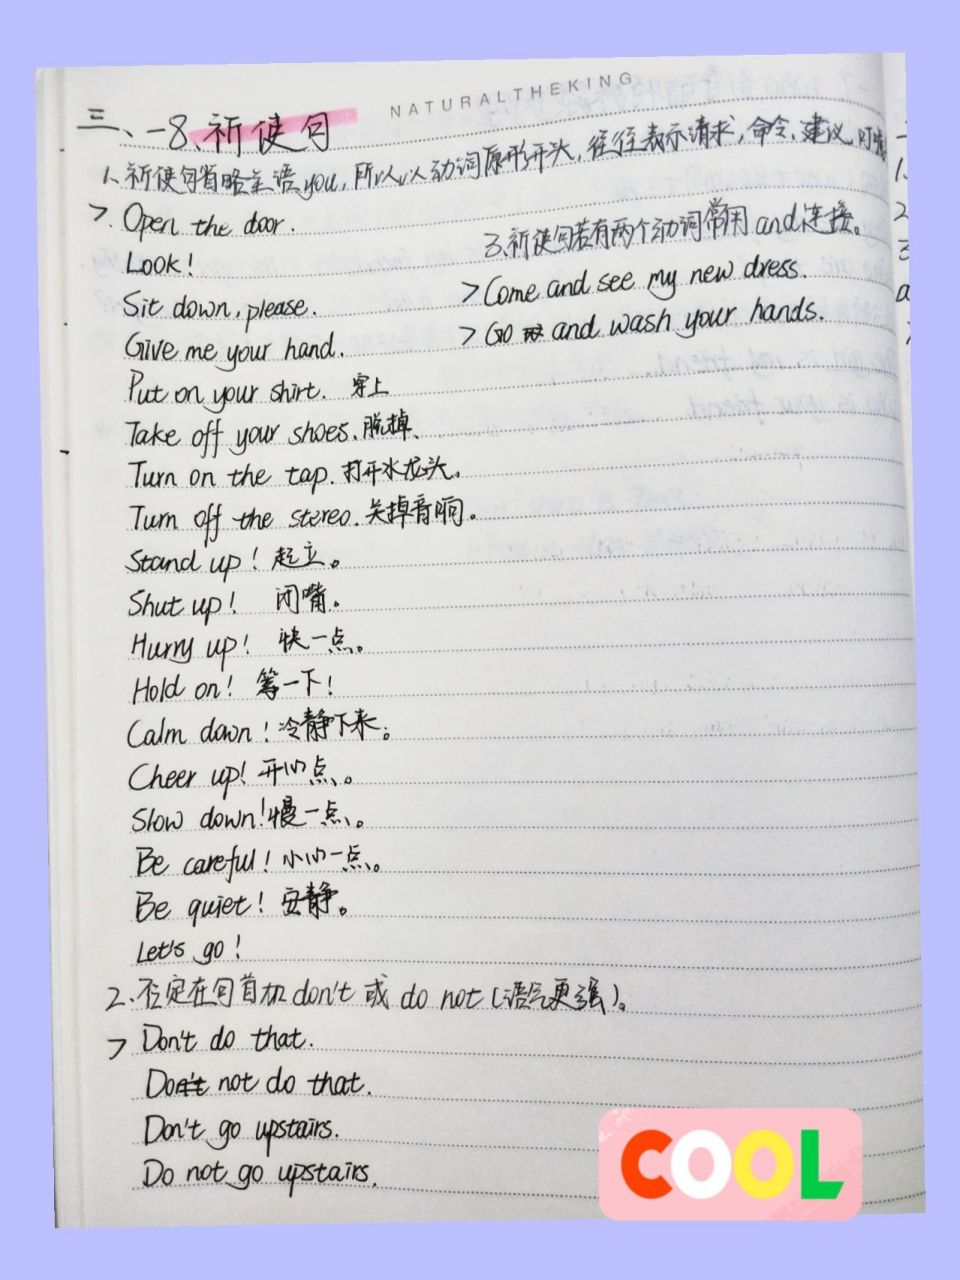 NATURALTHEKING
三、-8、祈使句
1、祈使句省略主语you,所以以动词原形开头,往往表示请求,命令,建议,叮嘱
> Open the door.
Look!
Sit down, please.
Give me your hand.
Put on your shirt. 穿上
Take off your shoes. 脱掉.
Turn on the tap. 打开水龙头。
Turn off the stereo. 关掉音响。
Stand up! 起立。
Shut up! 闭嘴。
Hurry up! 快一点。
Hold on! 等一下!
Calm down! 冷静下来。
Cheer up! 开心点。
Slow down! 慢一点。
Be careful! 小心一点。
Be quiet! 安静。
Let's go!
2、否定在句首加 don't 或 do not (语气更强)。
> Don't do that.
Do not do that.
Don't go upstairs.
Do not go upstairs.
3、祈使句若有两个动词常用 and 连接。
> Come and see my new dress.
> Go and wash your hands.
COOL